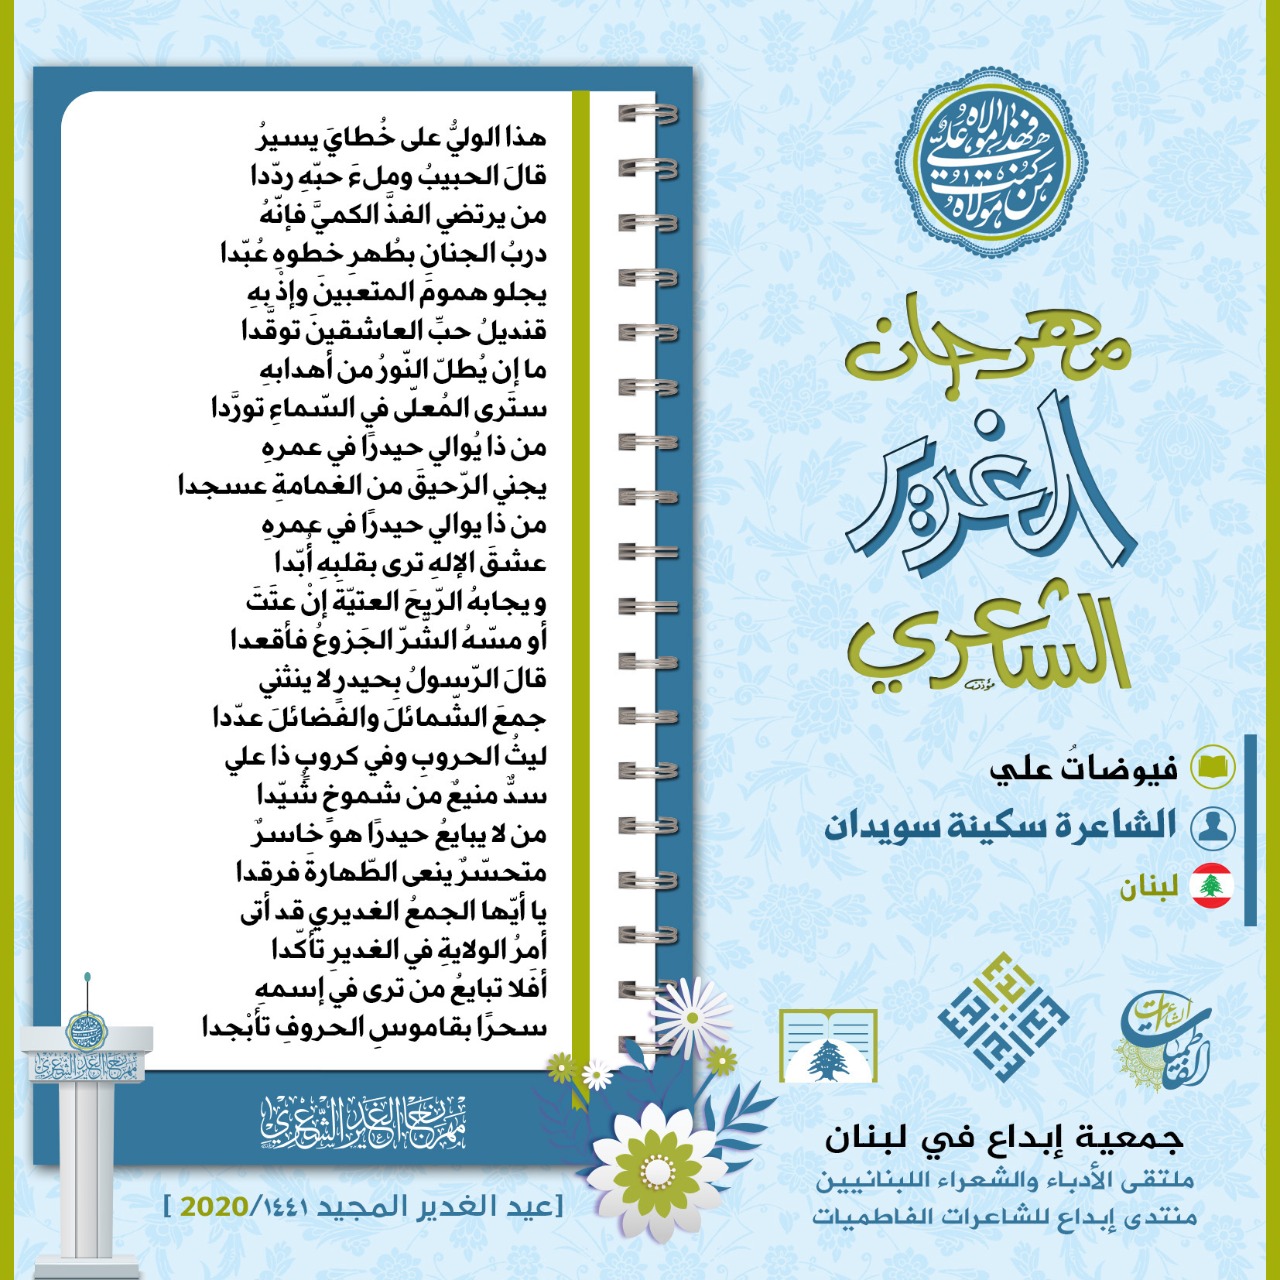 من كنت مولاه
فهذا مولاه علي
مهرجان
الغدير
الشاعري
فيوضاتُ علي
الشاعرة سكينة سويدان
لبنان
هذا الوليُّ على خُطايَ يسيرُ
قالَ الحبيبُ وملءَ حبّهِ ردّدا
من يرتضي الفذَّ الكميَّ فإنّهُ
دربُ الجنانِ بطُهرِ خطوهِ عُبّدا
يجلو همومَ المتعبينَ وإذْ بهِ
قنديلُ حبِّ العاشقينَ توقَّدا
ما إن يُطلّ النّورُ من أهدابهِ
ستَرى المُعلّى في السّماءِ تورَّدا
من ذا يُوالي حيدرًا في عمرهِ
يجني الرّحيقَ من الغمامةِ عسجدا
من ذا يوالي حيدرًا في عمرهِ
عشقَ الإلهِ ترى بقلبِهِ أُبّدا
ويجابهُ الرّيحَ العتيّةَ إنْ عتَتَ
أو مسّهُ الشّرّ الجَزوعُ فأقعدا
قالَ الرّسولُ بِحيدرٍ لا ينثني
جمعَ الشّمائلَ والفَضائلَ عدّدا
ليثُ الحروبِ وفي كروبٍ ذا علي
سدٌّ منيعٌ من شموخٍ شُيّدا
من لا يبايعُ حيدرًا هو خاسرٌ
متحسّرٌ ينعى الطّهارةَ فرقدا
يا أيّها الجمعُ الغديري قد أتى
أمرُ الولايةِ في الغديرِ تأكّدا
أفَلا تبايعُ من ترى في إسمهِ
سحرًا بقاموسِ الحروفِ تأَبْجدا
مهرجان الغدير الشعري
[عيد الغدير المجيد ١٤٤١/2020 ]
إبداع
الشاعرات الفاطميات
جمعية إبداع في لبنان
ملتقى الأدباء والشعراء اللبنانيين
منتدى إبداع للشاعرات الفاطميات